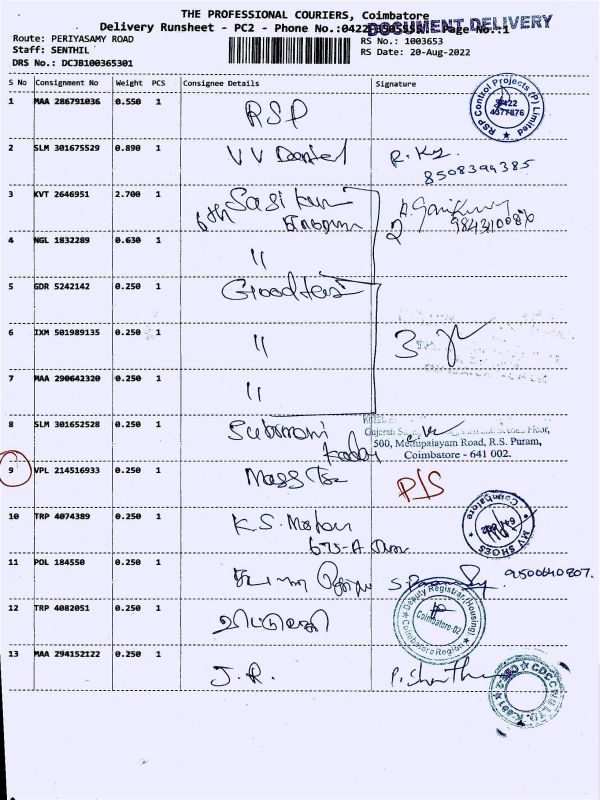 THE PROFESSIONAL COURIERS, Coimbatore
DOCUMENT DELIVERY
Delivery Runsheet - PC2 - Phone No.:0422 Page No.:1
Route: PERIYASAMY ROAD
RS No.: 1003653
Staff: SENTHIL
RS Date: 20-Aug-2022
DRS No.: DCJB100365301
S No Consignment No Weight PCS Consignee Details Signature
1 MAA 286791036 0.550 1 RSP
RSP Control Projects (P) Limited
0422
4377876
2 SLM 301675529 0.890 1 VV Dental R. Ky.
8508394385
3 KVT 2646951 2.700 1 Sasi kum
6th
2
4 NGL 1832289 0.630 1 "
5 GDR 5242142 0.250 1
6 IXM 501989135 0.250 1 " 3
7 MAA 290642320 0.250 1 "
8 SLM 301652528 0.250 1
Floor,
500, Mettupalayam Road, R.S. Puram,
Coimbatore - 641 002.
9 VPL 214516933 0.250 1 P/S
10 TRP 4074389 0.250 1 K.S. Mohan
675-A
MV SHOES Coimbatore
641 002
11 POL 184550 0.250 1 9500640807.
12 TRP 4082051 0.250 1
Deputy Registrar (Housing)
Coimbatore-02
Coimbatore Region
13 MAA 294152122 0.250 1 J.R. P. Shantha